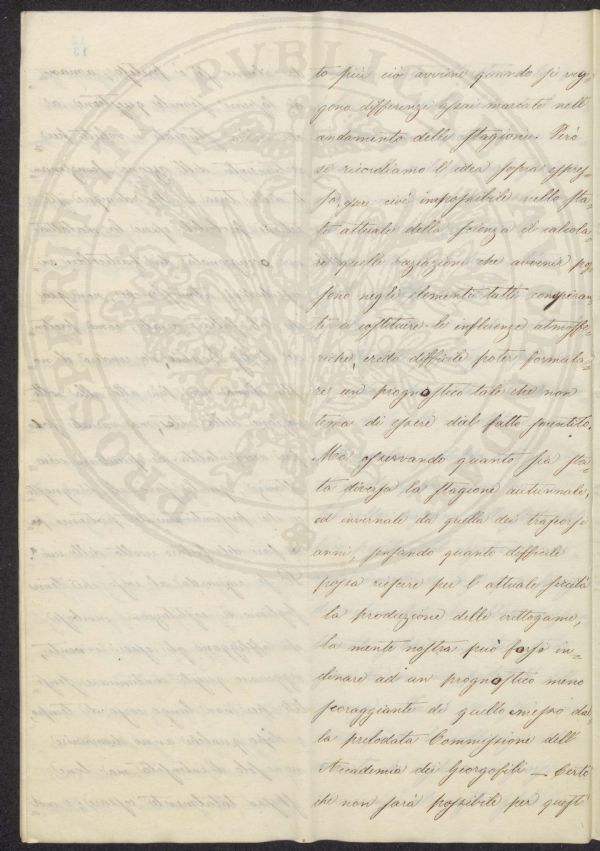 PROSPERITATI PUBLICAE AU
13
to più ciò avviene quando si veg-
gono differenze assai marcate nell'
andamento delle stagioni. Però
se ricordiamo l'idea sopra espres-
sa, cioè impossibile nello sta-
to attuale della scienza il calcola-
re quelle variazioni che avvenir pos-
sono negli elementi tutti conspiran-
ti a costituire le influenze atmosfe-
riche, credo difficile poter formula-
re un prognostico tale che non
tema di essere dal fatto smentito.
Ma osservando quanto sia sta-
ta diversa la stagione autunnale,
ed invernale da quella dei trascorsi
anni, pensando quanto difficile
possa riescire per l'attuale siccità
la produzione delle crittogame,
la mente nostra può forse in-
clinare ad un prognostico meno
scoraggiante di quello emesso dal-
la prelodata Commissione dell'
Accademia dei Georgofili — Certo
che non sarà possibile per questi